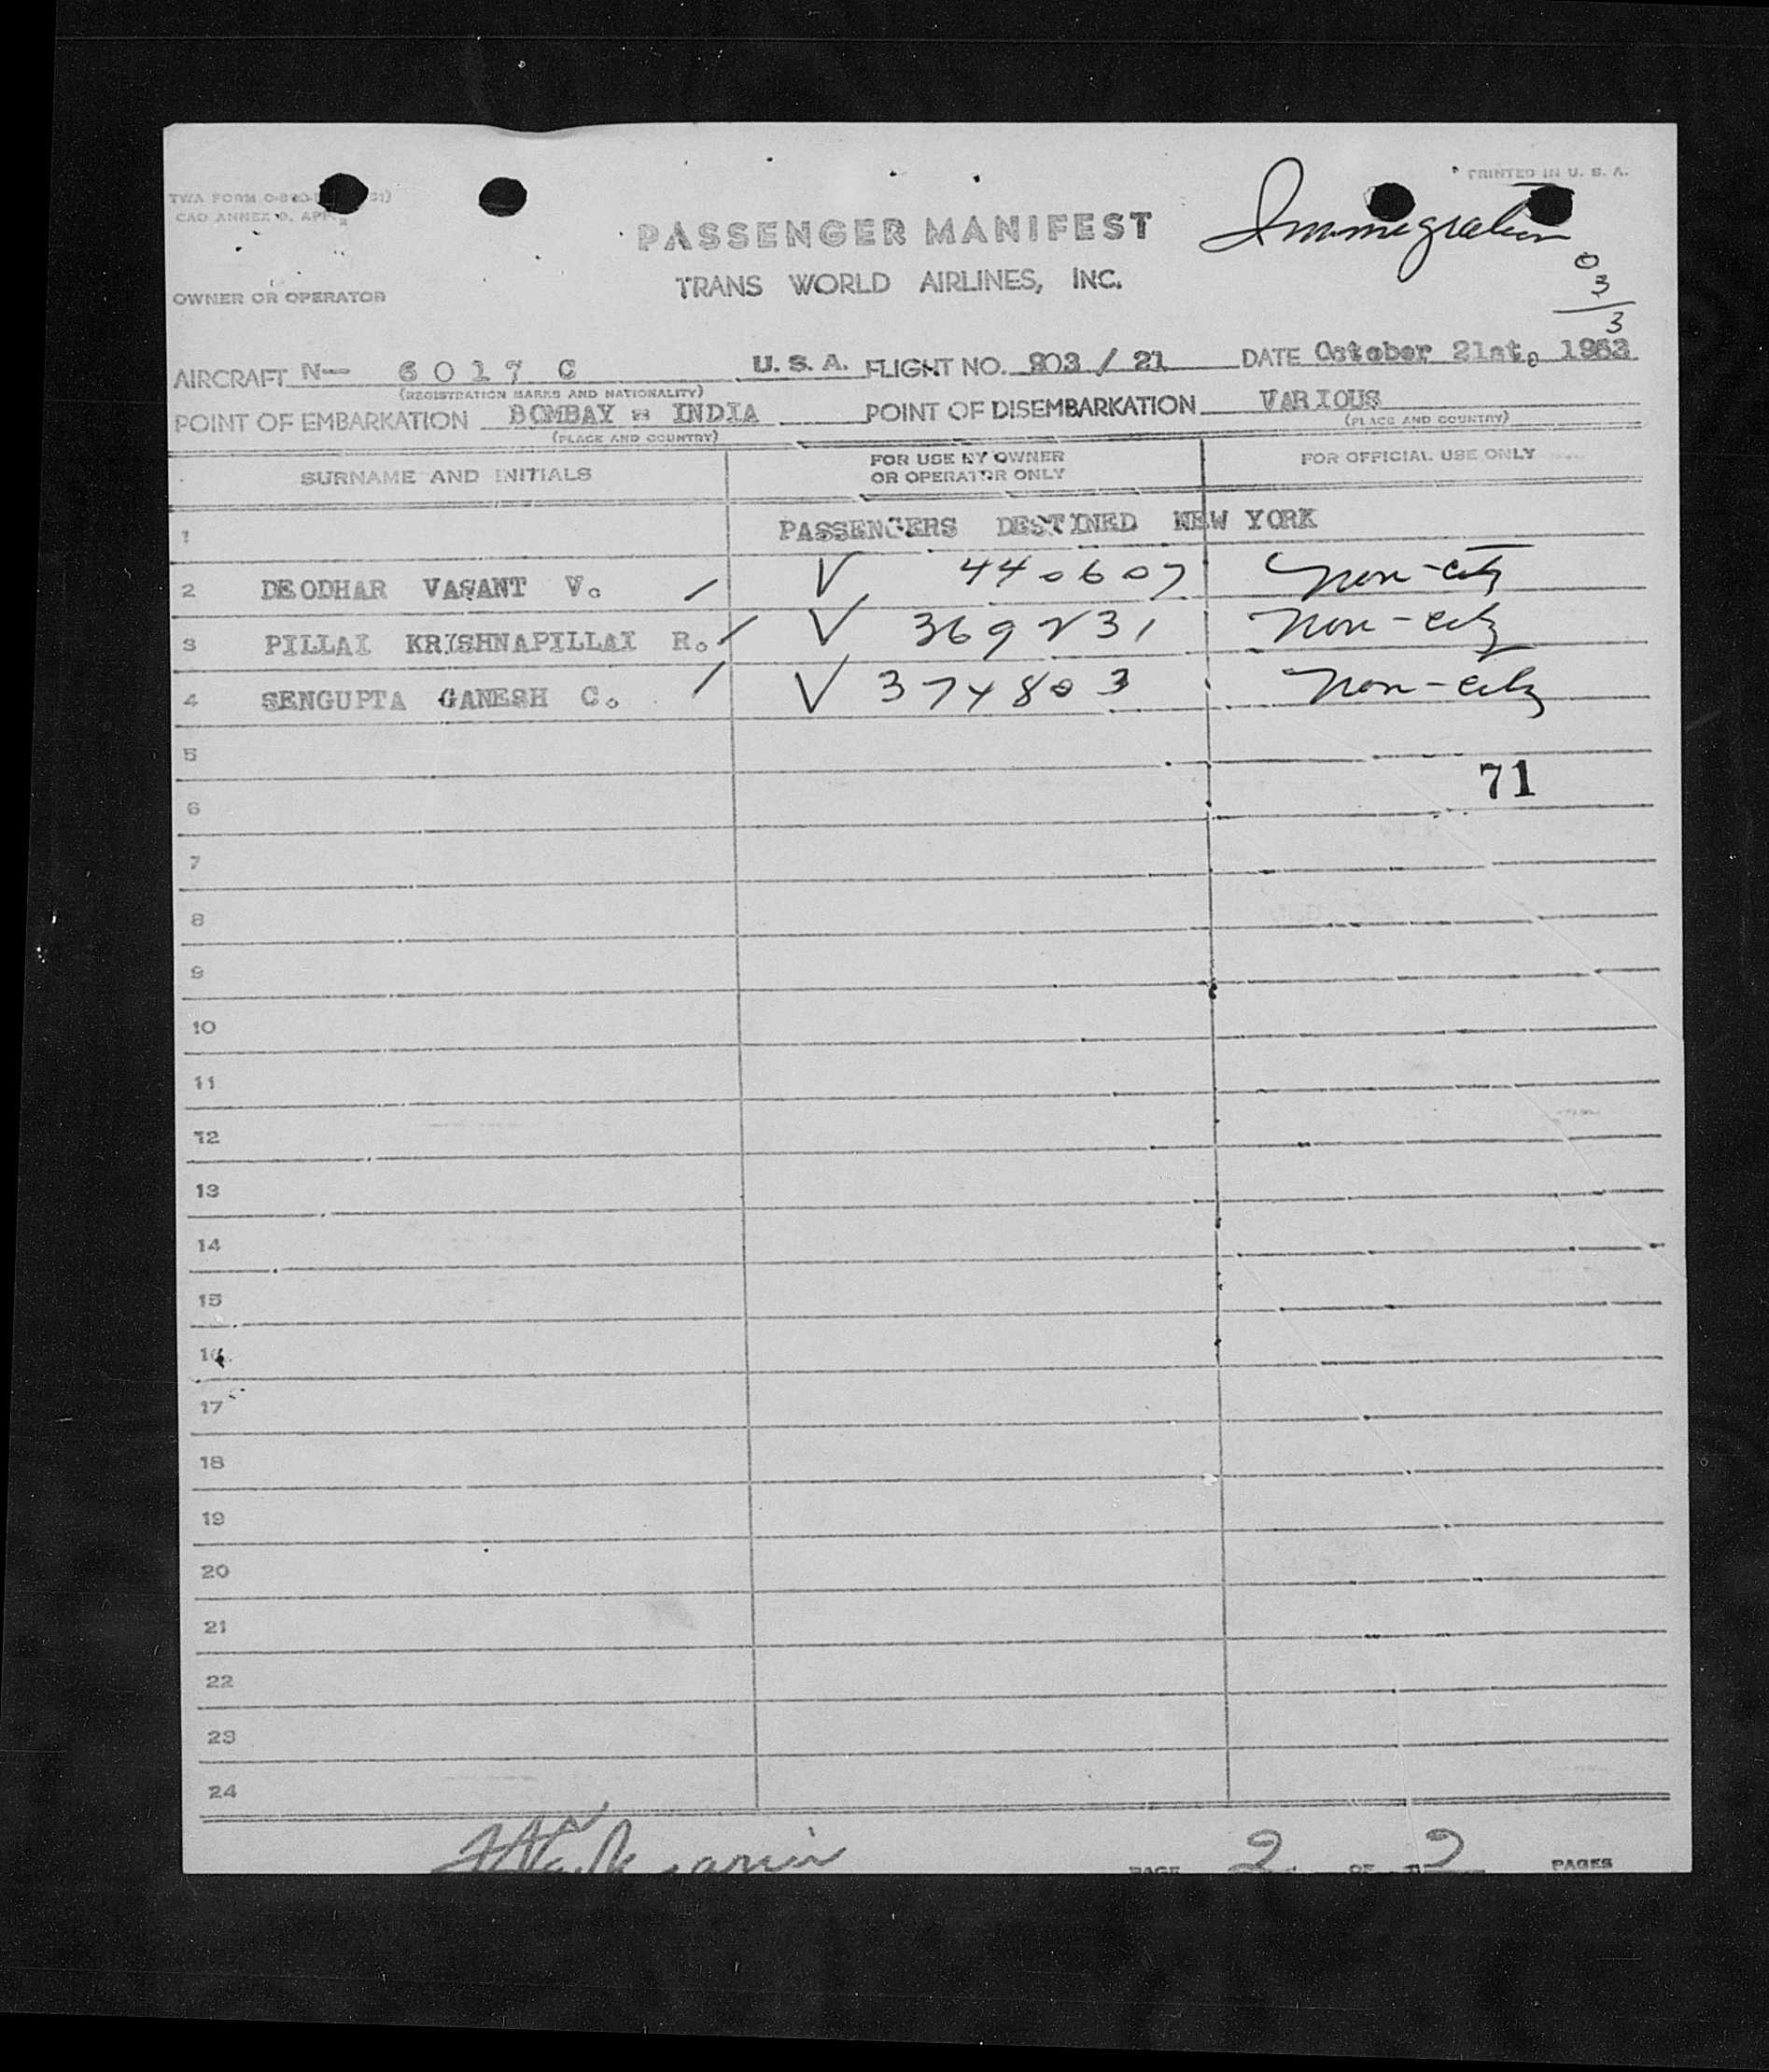 PRINTED IN U. S. A.
TWA FORM
CAO ANNEX 9, APP.
Immigration
PASSENGER MANIFEST
TRANS WORLD AIRLINES, INC.
0
3
3
OWNER OR OPERATOR
AIRCRAFT N— 6017 C U. S. A. FLIGHT NO. 903 / 21 DATE October 21st, 1953
(REGISTRATION MARKS AND NATIONALITY)
POINT OF EMBARKATION BOMBAY - INDIA POINT OF DISEMBARKATION VARIOUS
(PLACE AND COUNTRY) (PLACE AND COUNTRY)
SURNAME AND INITIALS FOR USE BY OWNER OR OPERATOR ONLY FOR OFFICIAL USE ONLY
1 PASSENGERS DESTINED NEW YORK
2 DEODHAR VASANT V. / V 440607 Non-citz
3 PILLAI KRISHNAPILLAI R. / V 369231 Non-citz
4 SENGUPTA GANESH C. / V 374803 Non-citz
5
71
6
7
8
9
10
11
12
13
14
15
16
17
18
19
20
21
22
23
24
PAGE 2 OF 2 PAGES